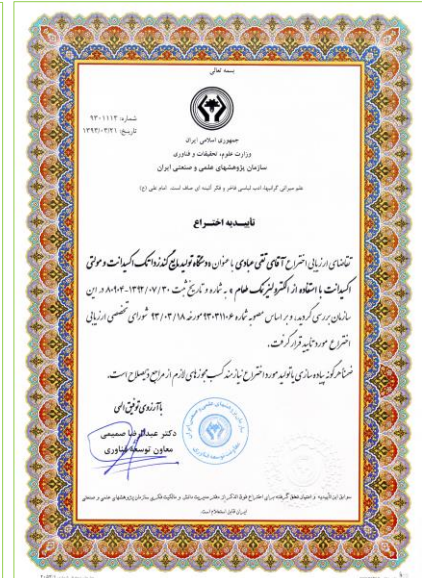 بسمه تعالی
شماره: ۹۳۰۱۱۱۳
تاریخ: ۱۳۹۳/۰۳/۲۱
جمهوری اسلامی ایران
وزارت علوم، تحقیقات و فناوری
سازمان پژوهشهای علمی و صنعتی ایران
علم میراثی گرانبها، ادب لباسی فاخر و فکر آئینه ای صاف است. امام علی (ع)
تأییدیه اختراع
تقاضای ارزیابی اختراع آقای تقی عبادی با عنوان «دستگاه تولید مایع گندزدا تک اکسیدانت و مولتی
اکسیدانت با استفاده از الکترولیز نمک طعام» به شماره و تاریخ ثبت ۱۳۹۲/۰۷/۳۰-۸۰۹۰۴ در این
سازمان بررسی گردید، و بر اساس مصوبه شماره ۹۳۰۳۱۱۰۶ مورخه ۹۳/۰۳/۱۸ شورای تخصصی ارزیابی
اختراع مورد تأیید قرار گرفت.
ضمناً هرگونه پیاده سازی یا تولید مورد اختراع نیازمند کسب مجوزهای لازم از مراجع ذیصلاح است.
با آرزوی توفیق الهی
دکتر عبدالرضا صمیمی
معاون توسعه فناوری
سوابق این تأییدیه و امتیاز تعلق گرفته برای اختراع فوق الذکر از دفتر مدیریت دانش و مالکیت فکری سازمان پژوهشهای علمی و صنعتی
ایران قابل استعلام است.